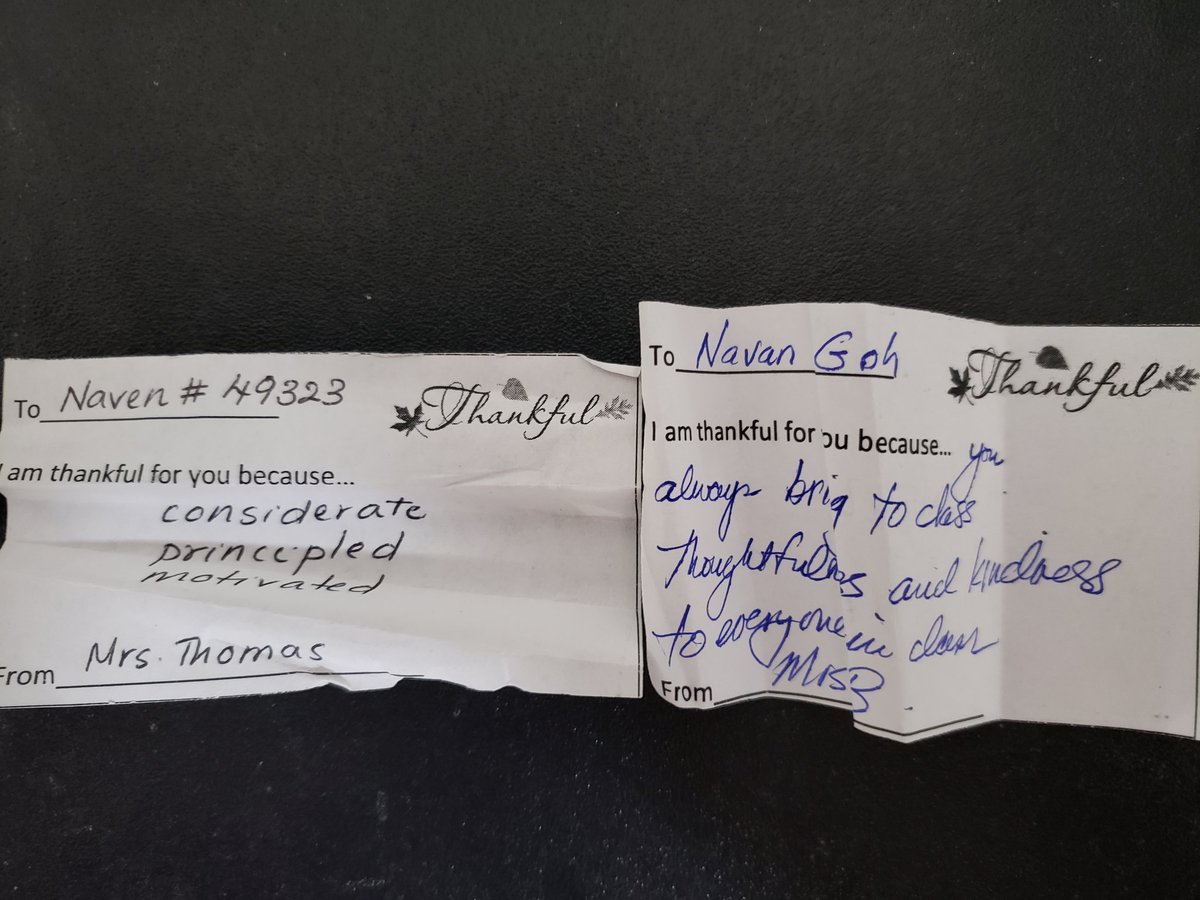 To Naven # 49323
Thankful
I am thankful for you because...
considerate
principled
motivated
From Mrs. Thomas
To Navan Goh
Thankful
I am thankful for ou because... you
always brig to class
Thoughtfulness and kindness
to everyone in class
From Mrs B